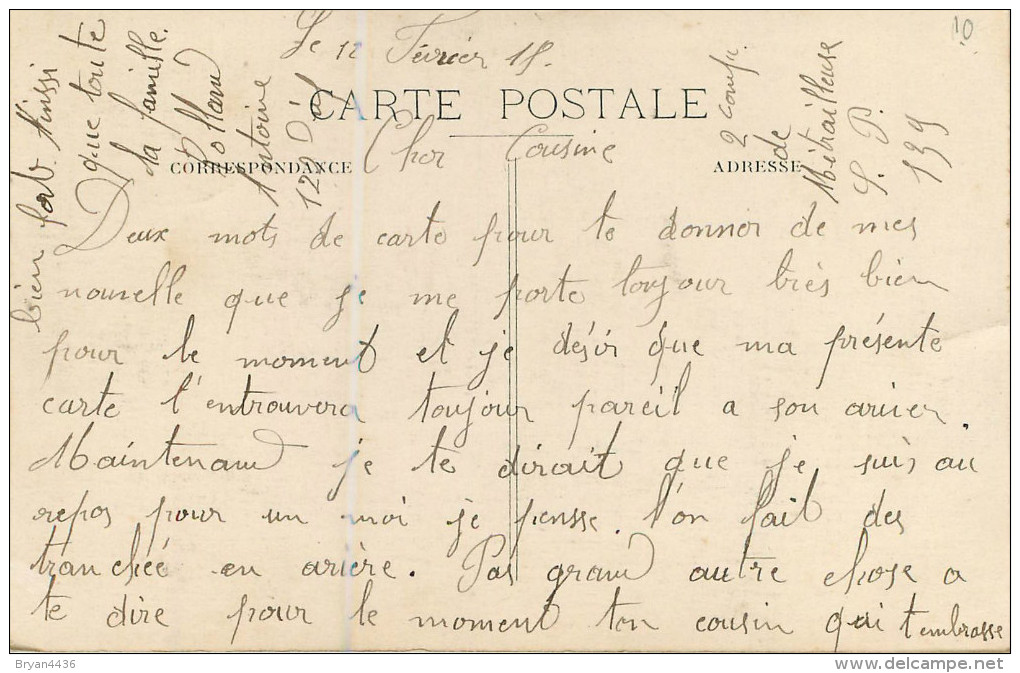 Le 12 Février 18.
CARTE POSTALE
CORRESPONDANCE
ADRESSE
Cher Cousine
Deux mots de carte pour te donner de mes
nouvelle que je me porte toujour très bien
pour le moment et je désir que ma présente
carte l'entrouvera toujour pareil a son arriver.
Maintenant je te dirait que je suis au
repos pour un moi je pensse. l'on fait des
tranchée en arière. Pas grand autre chose a
te dire pour le moment ton cousin qui t'embrasse
bien fort. Ainssi
que toute
la famille.
Rolland
Antoine
122 D'inf
2 Comp.
de
Mitrailleuse
S. P.
139
10
Bryan4436
delcampe.net